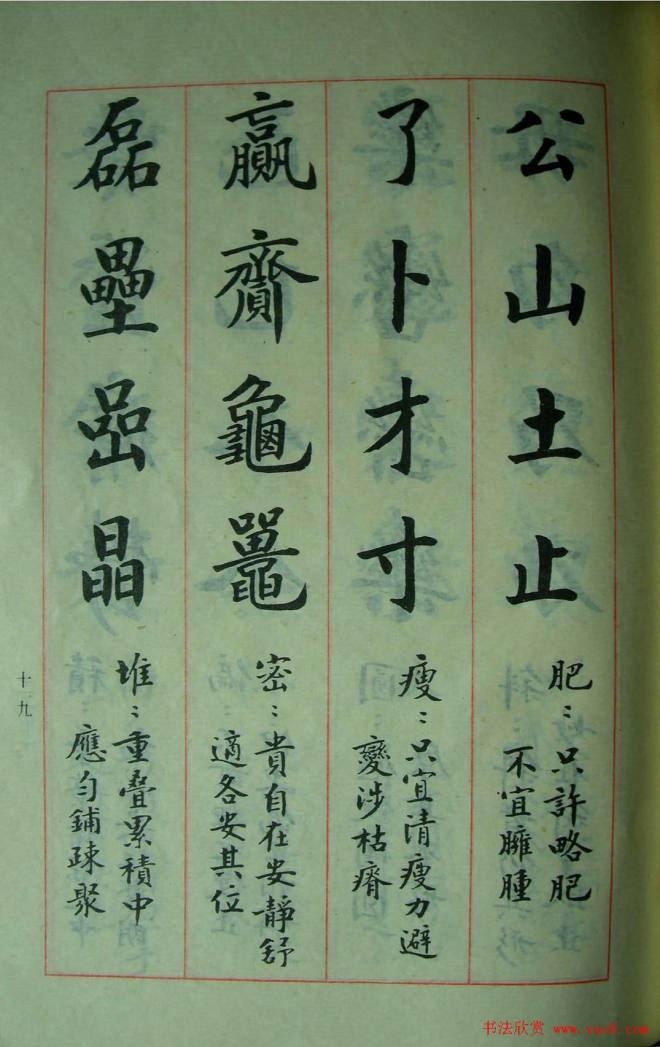 公山土止
肥：只許略肥
不宜臃腫
了卜才寸
瘦：只宜清瘦力避
變涉枯瘠
贏齎龜鼉
密：貴自在安靜舒
適各安其位
磊壘嵒晶
堆：重叠累積中
應勻鋪疎聚
十九
书法欣赏 www.yac8.com